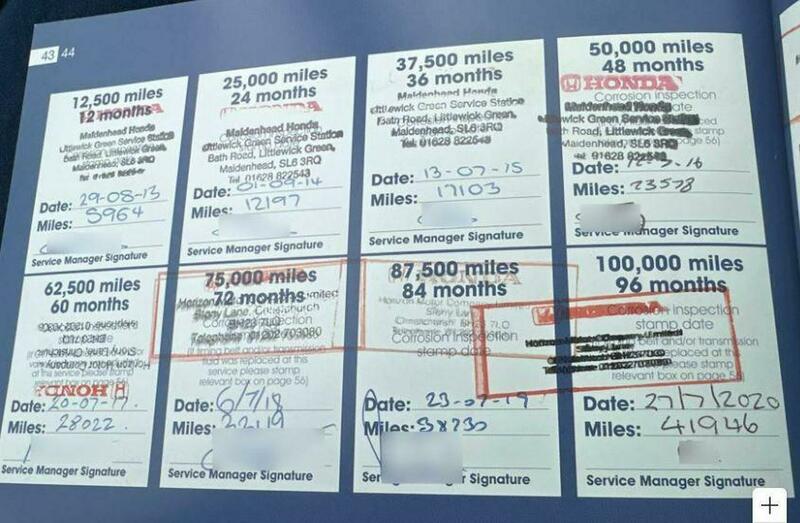 43 44
12,500 miles
12 months
Maidenhead Honda
Littlewick Green Service Station
Bath Road, Littlewick Green,
Maidenhead, SL6 3RQ
Tel: 01628 822543
Date: 29-08-13
Miles: 5964
Service Manager Signature
25,000 miles
24 months
Maidenhead Honda
Littlewick Green Service Station
Bath Road, Littlewick Green,
Maidenhead, SL6 3RQ
Tel: 01628 822543
Date: 01-09-14
Miles: 12197
Service Manager Signature
37,500 miles
36 months
Maidenhead Honda
Littlewick Green Service Station
Bath Road, Littlewick Green,
Maidenhead, SL6 3RQ
Tel: 01628 822543
Date: 13-07-15
Miles: 17103
Service Manager Signature
50,000 miles
48 months
HONDA
Corrosion inspection
Maidenhead Honda
Littlewick Green Service Station
Bath Road, Littlewick Green,
Maidenhead, SL6 3RQ
Tel: 01628 822543
Date:
Miles: 23578
Service Manager Signature
62,500 miles
60 months
Horizon Motor Company
Stony Lane, Christchurch
HONDA
Date: 20-07-17
Miles: 28022
Service Manager Signature
75,000 miles
72 months
Stony Lane, Christchurch
BH23 7LQ
Corrosion inspection
(If timing belt and/or transmission
fluid was replaced at this
service please stamp
relevant box on page 56)
Date: 6/7/18
Miles:
Service Manager Signature
87,500 miles
84 months
HONDA
Horizon Motor Company
Stony Lane
Christchurch BH23 7LQ
Corrosion inspection
stamp date
Date: 23-07-19
Miles: 38730
Service Manager Signature
100,000 miles
96 months
Corrosion inspection
stamp date
belt and/or transmission
replaced at this
service please stamp
relevant box on page 56)
Date: 27/7/2020
Miles: 41946
Service Manager Signature